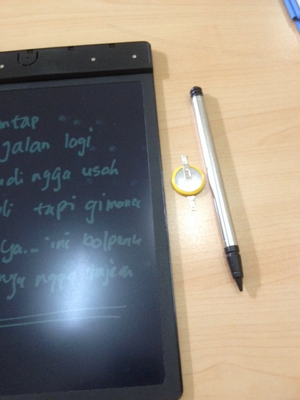 ntap
jalan logi
di ngga usah
li tapi gimana
ya... ini bolpena
nya ngga